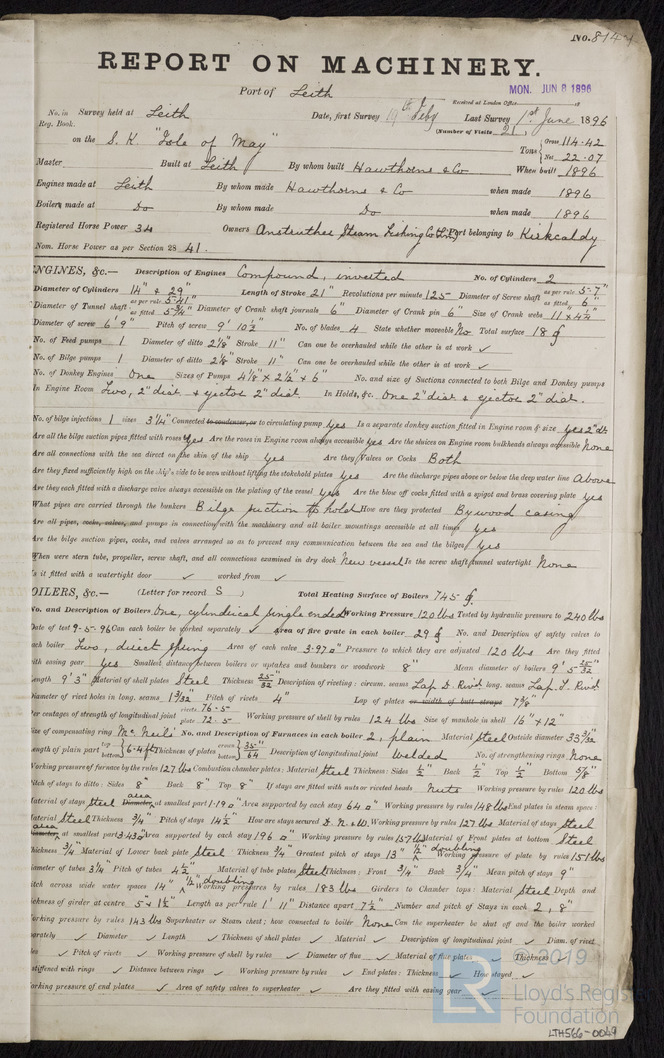 No. 814
REPORT ON MACHINERY.
Port of Leith
MON. JUN 8 1896
Received at London Office
No. in Reg. Book. Survey held at Leith Date, first Survey 19th Feby Last Survey 1st June 1896
(Number of Visits 21)
on the S.K "Isle of May" Tons Gross 114.42 Net 22.07
Master Built at Leith By whom built Hawthorns & Co When built 1896
Engines made at Leith By whom made Hawthorns & Co when made 1896
Boilers made at Do By whom made Do when made 1896
Registered Horse Power 34 Owners Anstruther Steam Fishing Co Lim Port belonging to Kirkcaldy
Nom. Horse Power as per Section 28 41.
ENGINES, &c.— Description of Engines Compound, inverted No. of Cylinders 2
Diameter of Cylinders 14" & 29" Length of Stroke 21" Revolutions per minute 125 Diameter of Screw shaft as per rule 5.7" as fitted 6"
Diameter of Tunnel shaft as per rule 5.41" as fitted 5 3/4" Diameter of Crank shaft journals 6" Diameter of Crank pin 6" Size of Crank webs 11" x 4 1/4"
Diameter of screw 6' 9" Pitch of screw 9' 10 1/2" No. of blades 4 State whether moveable No Total surface 18
No. of Feed pumps 1 Diameter of ditto 2 1/8" Stroke 11" Can one be overhauled while the other is at work ✓
No. of Bilge pumps 1 Diameter of ditto 2 1/8" Stroke 11" Can one be overhauled while the other is at work ✓
No. of Donkey Engines One Sizes of Pumps 4 1/8" x 2 1/2" x 6" No. and size of Suctions connected to both Bilge and Donkey pumps
In Engine Room Two, 2" diar & ejector 2" diar. In Holds, &c. One 2" diar & ejector 2" diar.
No. of bilge injections 1 sizes 3 1/4" Connected to condenser, or to circulating pump Yes Is a separate donkey suction fitted in Engine room & size yes 2" dr
Are all the bilge suction pipes fitted with roses yes Are the roses in Engine room always accessible yes Are the sluices on Engine room bulkheads always accessible None
Are all connections with the sea direct on the skin of the ship yes Are they Valves or Cocks Both
Are they fixed sufficiently high on the ship's side to be seen without lifting the stokehold plates yes Are the discharge pipes above or below the deep water line Above
Are they each fitted with a discharge valve always accessible on the plating of the vessel yes Are the blow off cocks fitted with a spigot and brass covering plate yes
What pipes are carried through the bunkers Bilge suction to hold How are they protected By wood casing
Are all pipes, cocks, valves, and pumps in connection with the machinery and all boiler mountings accessible at all times yes
Are the bilge suction pipes, cocks, and valves arranged so as to prevent any communication between the sea and the bilges yes
When were stern tube, propeller, screw shaft, and all connections examined in dry dock New vessel Is the screw shaft tunnel watertight None
Is it fitted with a watertight door ✓ worked from ✓
OILERS, &c.— (Letter for record S ) Total Heating Surface of Boilers 745
No. and Description of Boilers One, cylindrical single ended Working Pressure 120 lbs Tested by hydraulic pressure to 240 lbs
Date of test 9-5-96 Can each boiler be worked separately ✓ Area of fire grate in each boiler 29 No. and Description of safety valves to
each boiler Two, direct spring Area of each valve 3.97 □" Pressure to which they are adjusted 120 lbs Are they fitted
with easing gear yes Smallest distance between boilers or uptakes and bunkers or woodwork 8" Mean diameter of boilers 9' 5 25/32"
Length 9' 3" Material of shell plates Steel Thickness 25/32" Description of riveting: circum. seams Lap D. Rivd long. seams Lap T. Rivd
Diameter of rivet holes in long. seams 1 3/32" Pitch of rivets 4" Lap of plates or width of butt straps 7 5/8"
Per centages of strength of longitudinal joint rivets 76.5 plate 72.5 Working pressure of shell by rules 124 lbs Size of manhole in shell 16" x 12"
Size of compensating ring McNeils' No. and Description of Furnaces in each boiler 2, plain Material Steel Outside diameter 33 3/32
Length of plain part top bottom 6-4 ft Thickness of plates crown bottom 35"/64 Description of longitudinal joint Welded No. of strengthening rings None
Working pressure of furnace by the rules 127 lbs Combustion chamber plates: Material Steel Thickness: Sides 1/2" Back 1/2" Top 1/2" Bottom 5/8"
Pitch of stays to ditto: Sides 8" Back 8" Top 8" If stays are fitted with nuts or riveted heads Nuts Working pressure by rules 120 lbs
Material of stays Steel Diameter area at smallest part 1.19 □" Area supported by each stay 64 □" Working pressure by rules 148 lbs End plates in steam space:
Material Steel Thickness 3/4" Pitch of stays 14 1/2" How are stays secured D. N. & W. Working pressure by rules 127 lbs Material of stays Steel
area at smallest part 3.43 □" Area supported by each stay 196 □" Working pressure by rules 157 lbs Material of Front plates at bottom Steel
Thickness 3/4" Material of Lower back plate Steel Thickness 3/4" Greatest pitch of stays 13" 1/2" doubling Working pressure of plate by rules 151 lbs
Diameter of tubes 3 1/4" Pitch of tubes 4 1/2" Material of tube plates Steel Thickness: Front 3/4" Back 3/4" Mean pitch of stays 9"
Pitch across wide water spaces 14" 1/2" doubling Working pressures by rules 183 lbs Girders to Chamber tops: Material Steel Depth and
thickness of girder at centre 5" x 1 1/2" Length as per rule 1' 11" Distance apart 7 1/2" Number and pitch of Stays in each 2, 8"
Working pressure by rules 143 lbs Superheater or Steam chest; how connected to boiler None Can the superheater be shut off and the boiler worked
separately ✓ Diameter ✓ Length ✓ Thickness of shell plates ✓ Material ✓ Description of longitudinal joint ✓ Diam. of rivet
holes ✓ Pitch of rivets ✓ Working pressure of shell by rules ✓ Diameter of flue ✓ Material of flue plates ✓ Thickness ✓
If stiffened with rings ✓ Distance between rings ✓ Working pressure by rules ✓ End plates: Thickness ✓ How stayed ✓
Working pressure of end plates ✓ Area of safety valves to superheater ✓ Are they fitted with easing gear ✓
© 2019
LR
Lloyd's Register
Foundation
LTH566-0069